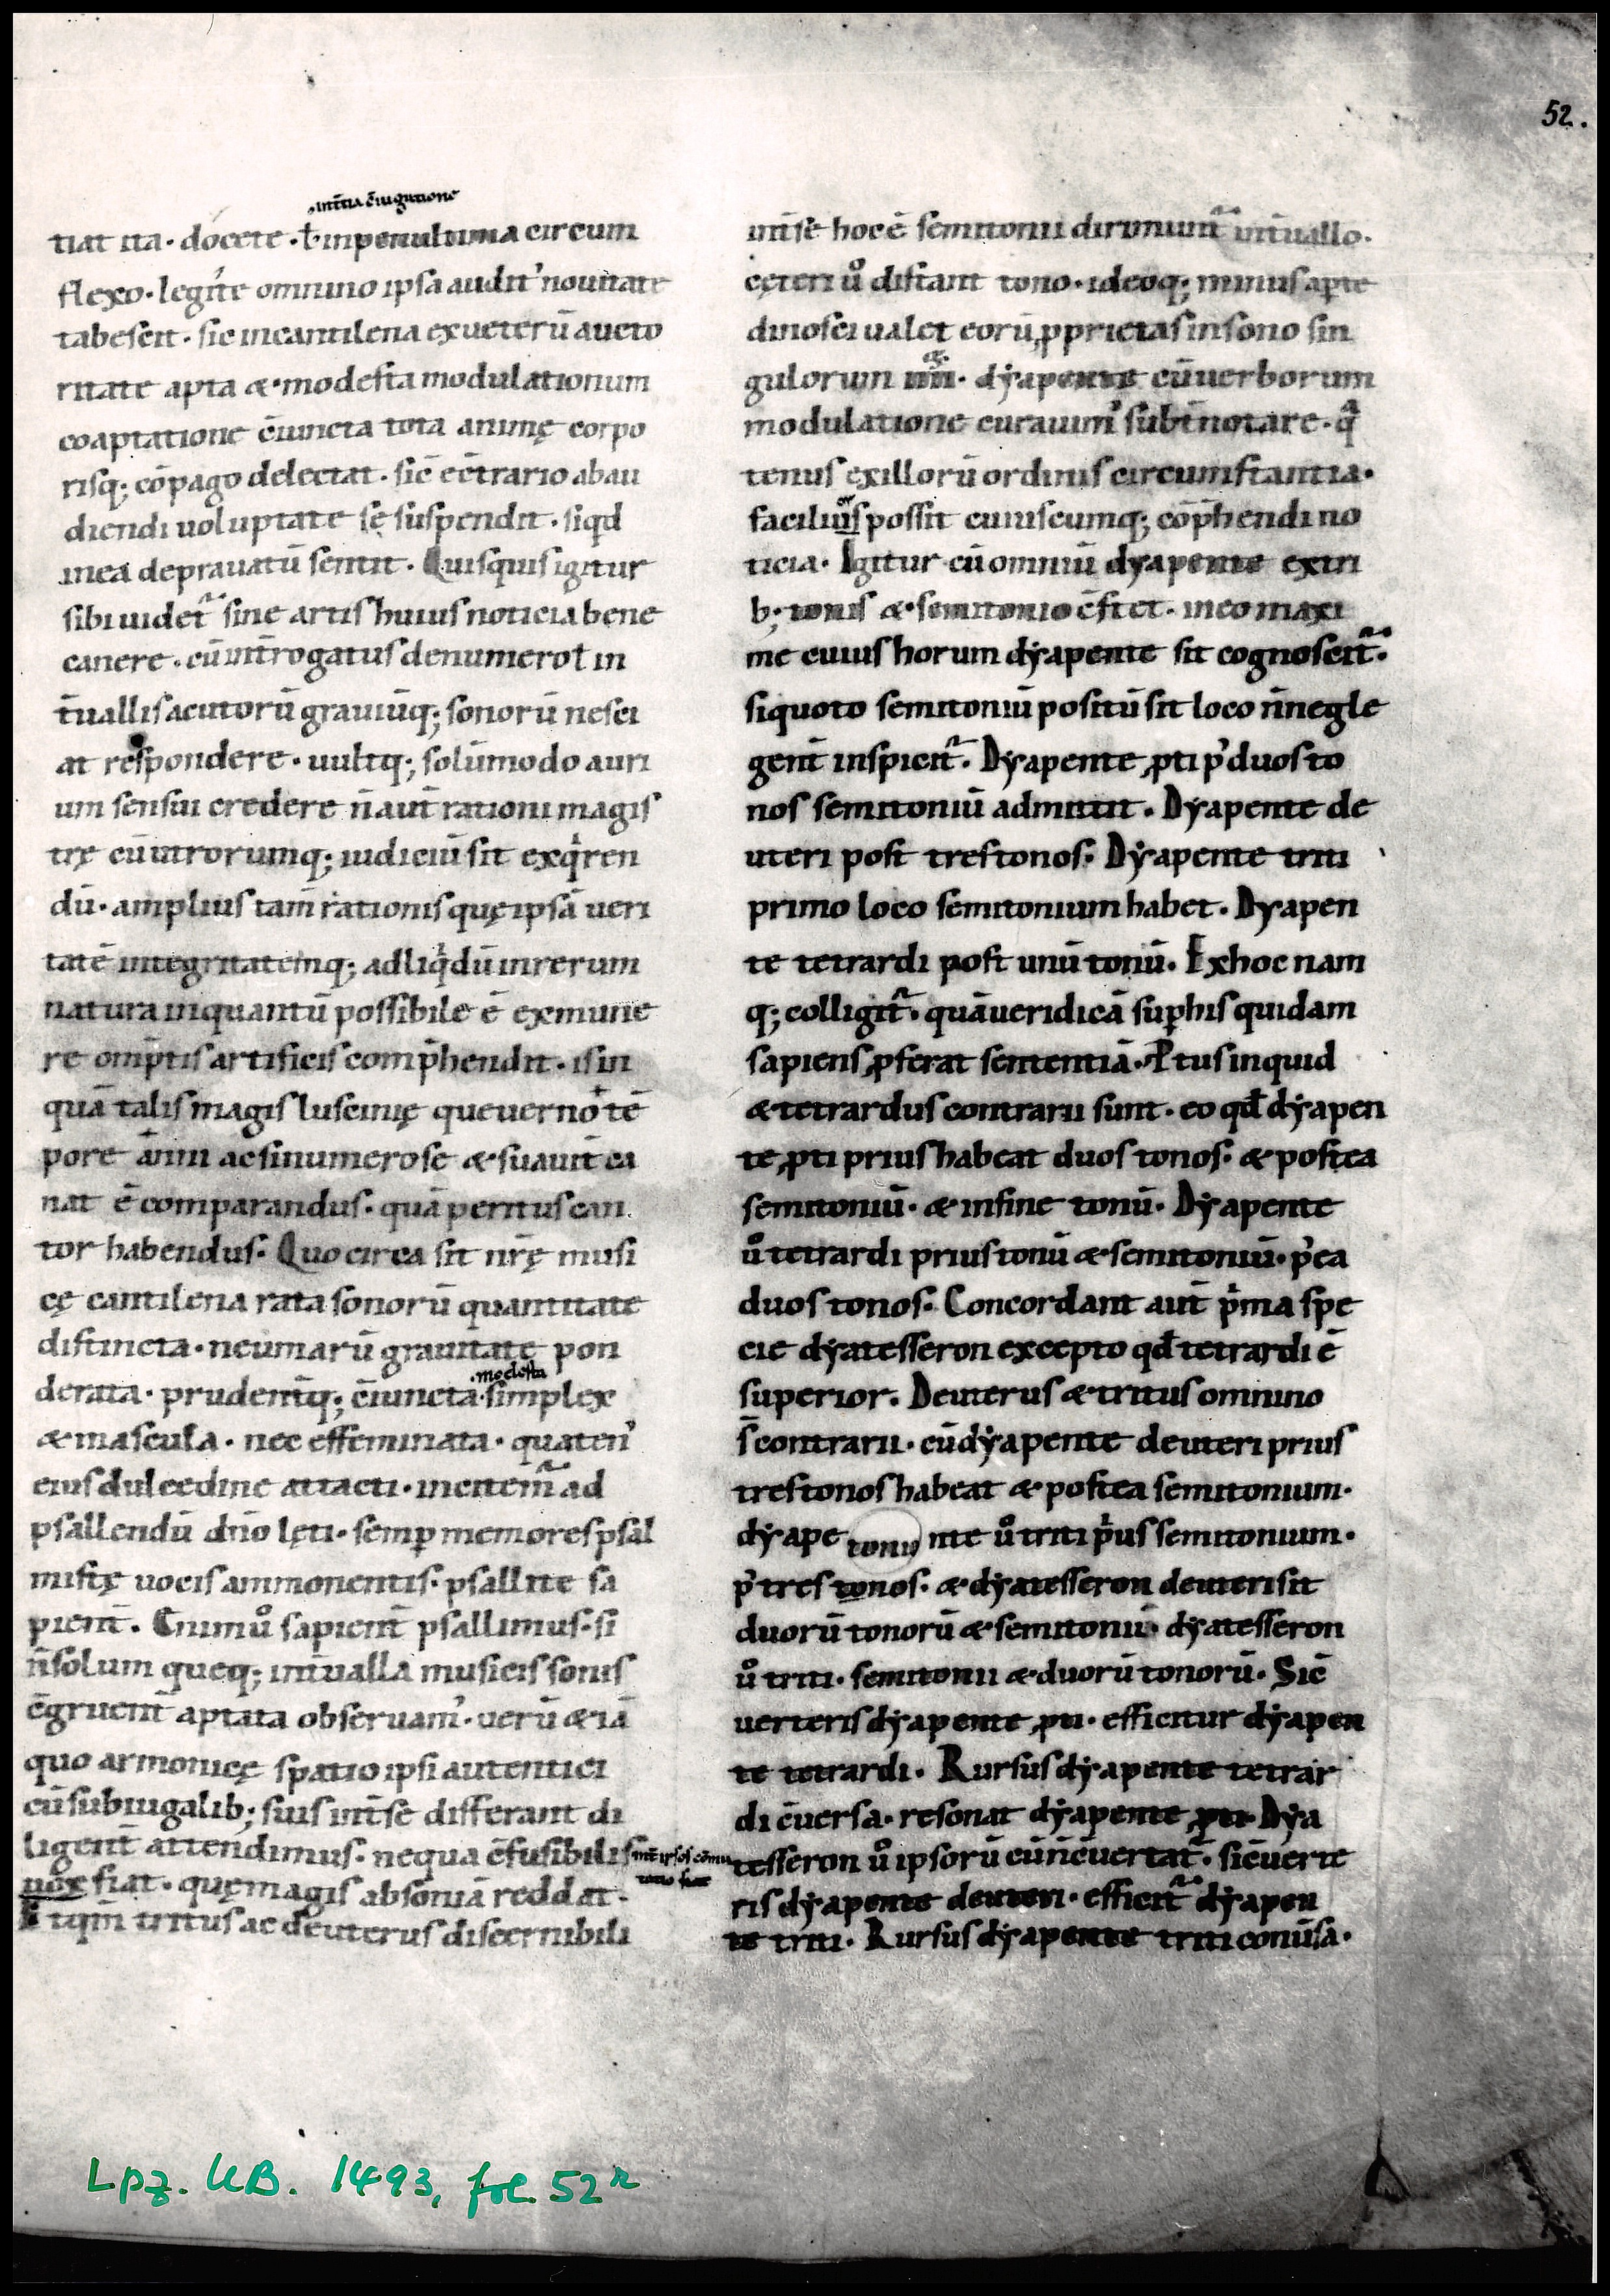 52.
tiat ita · docete · ł inpenultima circum
flexo · legit͛e omnino ipsa audit᷒ nouitate
tabescit · sic incantilena exueterū aucto
ritate apta & modesta modulationum
coaptatione c̄iuncta tota animę corpo
risq; cōpago delectat · sic̄ ec̄trario abau
diendi uoluptate sę suspendit · siqđ
inea deprauatū sentit · Quisquis igitur
sibi uidet᷑ sine artis huius noticia bene
canere · cū int̄rogatus denumero ł in
t̄uallis acutorū grauiūq; sonorū nesci
at respondere · uultq; solūmodo auri
um sensui credere n̄ aut̄ rationi magis
trę cū utrorumq; iudiciū sit exqͥren
dū · amplius tam̄ rationis quę ipsā ueri
tatē integritatemq; adliqͥdū inrerum
natura inquantū possibile ē exmune
re omp̄tis artificis comp̄hendit · is in
quā talis magis luscinię que uerno tē
pore anni ac si numerose & suauit̄ ca
nat ē comparandus · quā peritus can
tor habendus · Quo circa sit nr̄ę musi
cę cantilena rata sonorū quantitate
distincta · neumarū grauitate pon
· modesta
derata · prudent̄q; c̄iuncta · simplex
& mascula · nec effeminata · quaten᷒
eius dulcedine attacti · incitem᷑ ad
psallendū dn̄o lęti · semp̱ memores psal
mistę uocis ammonentis · psallite sa
pient̄ · Enimu̇ sapient̄ psallimus · si
n̄ solum queq; int̄ualla musicis sonis
c̄gruent̄ aptata obseruam᷒ · uerū & iā
quo armonicę spatio ipsi autentici
cū subiugalib; suis int̄ se differant di
ligent̄ attendimus · nequa c̄fusibilis
uox fiat · quę magis absoniā reddat ·
Et qm̄ tritus ac deuterus discernibili
int̄ se hoc ē semitonii dirimunt᷑ int̄uallo ·
cęteri u̇ distant tono · ideoq; minus aperte
dinosci ualet eorū ꝓprietas insono sin
gulorum iiii · dyapente cū uerborum
modulatione curauim᷒ subt̄notare · qͣ
tenus exillorū ordinis circumstantia ·
facilius possit cuiuscumq; cōp̄hendi no
ticia · Igitur cū omniū dyapente extri
b; tonis & semitonio c̄stet · ineo maxi
me cuius horum dyapente sit cognoscit᷑ ·
siquoto semitoniū positū sit loco n̄ negle
gent̄ inspicit᷑ · Dyapente ꝓti p᷒ duos to
nos semitoniū admittit · Dyapente de
uteri post tres tonos · Dyapente triti
primo loco semitonium habet · Dyapen
te tetrardi post unū tonū · Exhoc nam
q; colligit᷑ · quā ueridicā sup̱ his quidam
sapiens ꝓferat sententiā · Ptus inquid
& tetrardus contrarii sunt · eo qđ dyapen
te ꝓti prius habeat duos tonos · & postea
semitoniū · & infine tonū · Dyapente
u̇ tetrardi prius tonū & semitoniū · p᷒ea
duos tonos · Concordant aut̄ pͥma spe
cie dyatesseron excepto qđ tetrardi ē
superior · Deuterus & tritus omnino
s̄ contrarii · cū dyapente deuteri prius
tres tonos habeat & postea semitonium ·
dyapente u̇ triti pͥus semitonium ·
p᷒ tres tonos · & dyatesseron deuteri sit
duorū tonorū & semitoniū · dyatesseron
u̇ triti · semitonii & duorū tonorū · Sic̄
uerteris dyapente ꝓti · efficitur dyapen
te tetrardi · Rursus dyapente tetrar
di c̄uersa · resonat dyapente ꝓti · Dya
tesseron u̇ ipsorū cū n̄ c̄uertat᷑ · si c̄uerte
ris dyapente deuteri · efficit᷑ dyapen
te triti · Rursus dyapente triti conūsa ·
Lpz. UB. 1493, fol. 52r